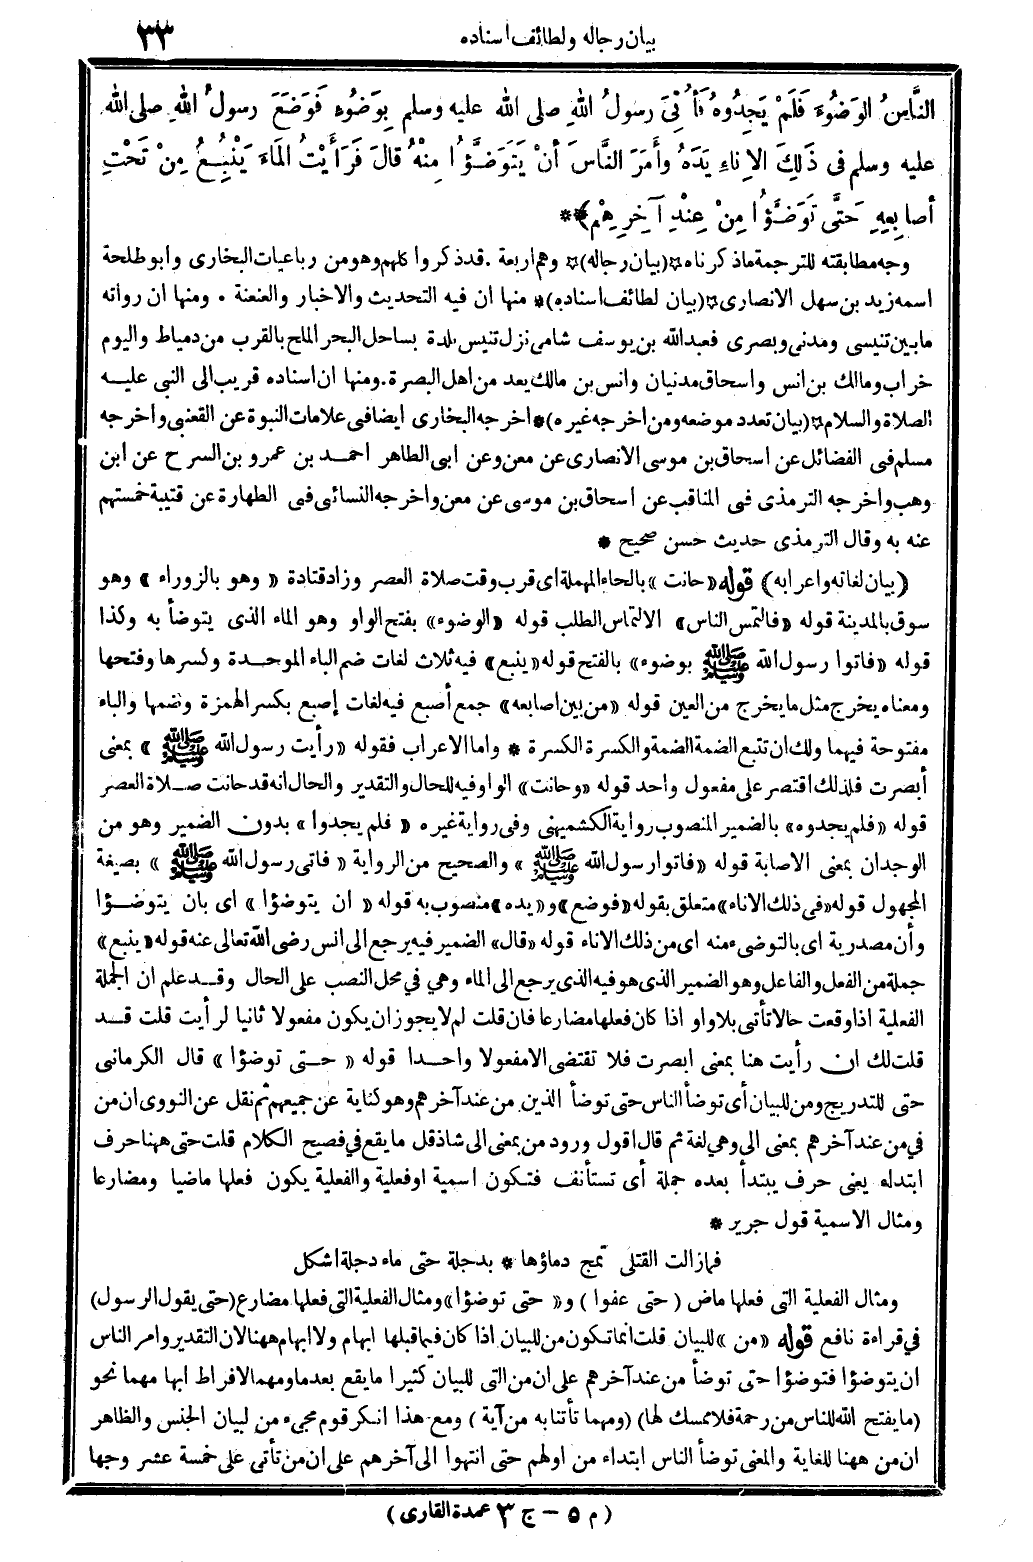 بيان رجاله ولطائف اسناده
٣٣
النَّاسُ الوَضُوءَ فَلَمْ يَجِدُوهُ فَأُتِىَ رسولُ اللهِ صلى الله عليه وسلم بِوَضُوءٍ فَوَضَعَ رسولُ اللهِ صلى الله
عليه وسلم فى ذَلِكَ الإِناءِ يَدَهُ وأَمَرَ النَّاسَ أَنْ يَتَوَضَّؤُا مِنْهُ قالَ فَرَأَيْتُ الْمَاءَ يَنْبُعُ مِنْ تَحْتِ
أصابِعِهِ حَتَّى تَوَضَّؤُا مِنْ عِنْدِ آخِرِهِمْ)**
وجه مطابقته للترجمة ماذكرناه *(بيان رجاله)* وهم اربعة . قد ذكروا كلهم وهو من رباعيات البخارى وابو طلحة
اسمه زيد بن سهل الانصارى *(بيان لطائف اسناده)* منها ان فيه التحديث والاخبار والعنعنة . ومنها ان رواته
مابين تنيسى ومدنى وبصرى فعبدالله بن يوسف شامى نزل تنيس بلدة بساحل البحر الملح بالقرب من دمياط واليوم
خراب ومالك بن انس واسحاق مدنيان وانس بن مالك يعد من اهل البصرة . ومنها ان اسناده قريب الى النبى عليه
الصلاة والسلام *(بيان تعدد موضعه ومن اخرجه غيره)* اخرجه البخارى ايضا فى علامات النبوة عن القعنبى واخرجه
مسلم فى الفضائل عن اسحاق بن موسى الانصارى عن معن وعن ابى الطاهر احمد بن عمرو بن السرح عن ابن
وهب واخرجه الترمذى فى المناقب عن اسحاق بن موسى عن معن واخرجه النسائى فى الطهارة عن قتيبة خمستهم
عنه به وقال الترمذى حديث حسن صحيح *
(بيان لغاته واعرابه) قوله «حانت» بالحاء المهملة اى قرب وقت صلاة العصر وزاد قتادة «وهو بالزوراء» وهو
سوق بالمدينة قوله «فالتمس الناس» الالتماس الطلب قوله «الوضوء» بفتح الواو وهو الماء الذى يتوضأ به وكذا
قوله «فاتوا رسول الله ﷺ بوضوء» بالفتح قوله «ينبع» فيه ثلاث لغات ضم الباء الموحدة وكسرها وفتحها
ومعناه يخرج مثل ما يخرج من العين قوله «من بين اصابعه» جمع أصبع فيه لغات إصبع بكسر الهمزة وضمها والباء
مفتوحة فيهما ولك ان تتبع الضمة الضمة والكسرة الكسرة * واما الاعراب فقوله «رأيت رسول الله ﷺ» بمعنى
أبصرت فلذلك اقتصر على مفعول واحد قوله «وحانت» الواو فيه للحال والتقدير والحال انه قد حانت صلاة العصر
قوله «فلم يجدوه» بالضمير المنصوب رواية الكشميهنى وفى رواية غيره «فلم يجدوا» بدون الضمير وهو من
الوجدان بمعنى الاصابة قوله «فاتوا رسول الله ﷺ» والصحيح من الرواية «فاتى رسول الله ﷺ» بصيغة
المجهول قوله «فى ذلك الاناء» متعلق بقوله «فوضع» و«يده» منصوب به قوله «ان يتوضؤا» اى بان يتوضؤا
وأن مصدرية اى بالتوضىء منه اى من ذلك الاناء قوله «قال» الضمير فيه يرجع الى انس رضى الله تعالى عنه قوله «ينبع»
جملة من الفعل والفاعل وهو الضمير الذى هو فيه الذى يرجع الى الماء وهي في محل النصب على الحال وقد علم ان الجملة
الفعلية اذا وقعت حالا تأتى بلا واو اذا كان فعلها مضارعا فان قلت لم لا يجوز ان يكون مفعولا ثانيا لرأيت قلت قد
قلت لك ان رأيت هنا بمعنى ابصرت فلا تقتضى الا مفعولا واحدا قوله «حتى توضؤا» قال الكرمانى
حتى للتدريج ومن للبيان أى توضأ الناس حتى توضأ الذين من عند آخرهم وهو كناية عن جميعهم ثم نقل عن النووى ان من
في من عند آخرهم بمعنى الى وهي لغة ثم قال اقول ورود من بمعنى الى شاذ قل ما يقع في فصيح الكلام قلت حتى ههنا حرف
ابتداء يعنى حرف يبتدأ بعده جملة أى تستأنف فتكون اسمية او فعلية والفعلية يكون فعلها ماضيا ومضارعا
ومثال الاسمية قول جرير *
فمازالت القتلى تمج دماؤها * بدجلة حتى ماء دجلة اشكل
ومثال الفعلية التى فعلها ماض (حتى عفوا) و«حتى توضؤا» ومثال الفعلية التى فعلها مضارع (حتى يقول الرسول)
في قراءة نافع قوله «من» للبيان قلت انما تكون من للبيان اذا كان فيما قبلها ابهام ولا ابهام ههنا لان التقدير وامر الناس
ان يتوضؤا فتوضؤا حتى توضأ من عند آخرهم على ان من التى للبيان كثيرا ما يقع بعد ما ومهما لافراط ابهامهما نحو
(ما يفتح الله للناس من رحمة فلا ممسك لها) (ومهما تأتنا به من آية) ومع هذا انكر قوم مجىء من لبيان الجنس والظاهر
ان من ههنا للغاية والمعنى توضأ الناس ابتداء من اولهم حتى انتهوا الى آخرهم على ان من تأتى على خمسة عشر وجها
(م ٥ – ج ٣ عمدة القارى)